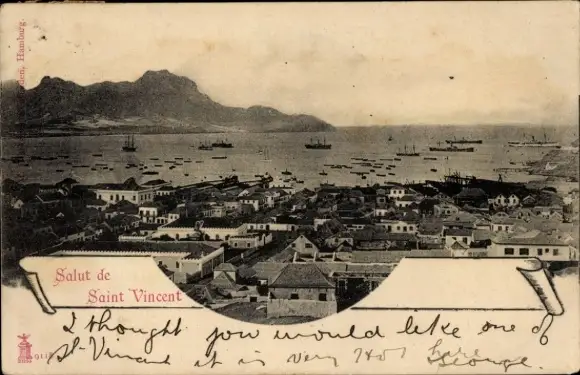 den, Hamburg.
Salut de
Saint Vincent
I thought you would like one of
St-Vincent it is very Hot here
George.